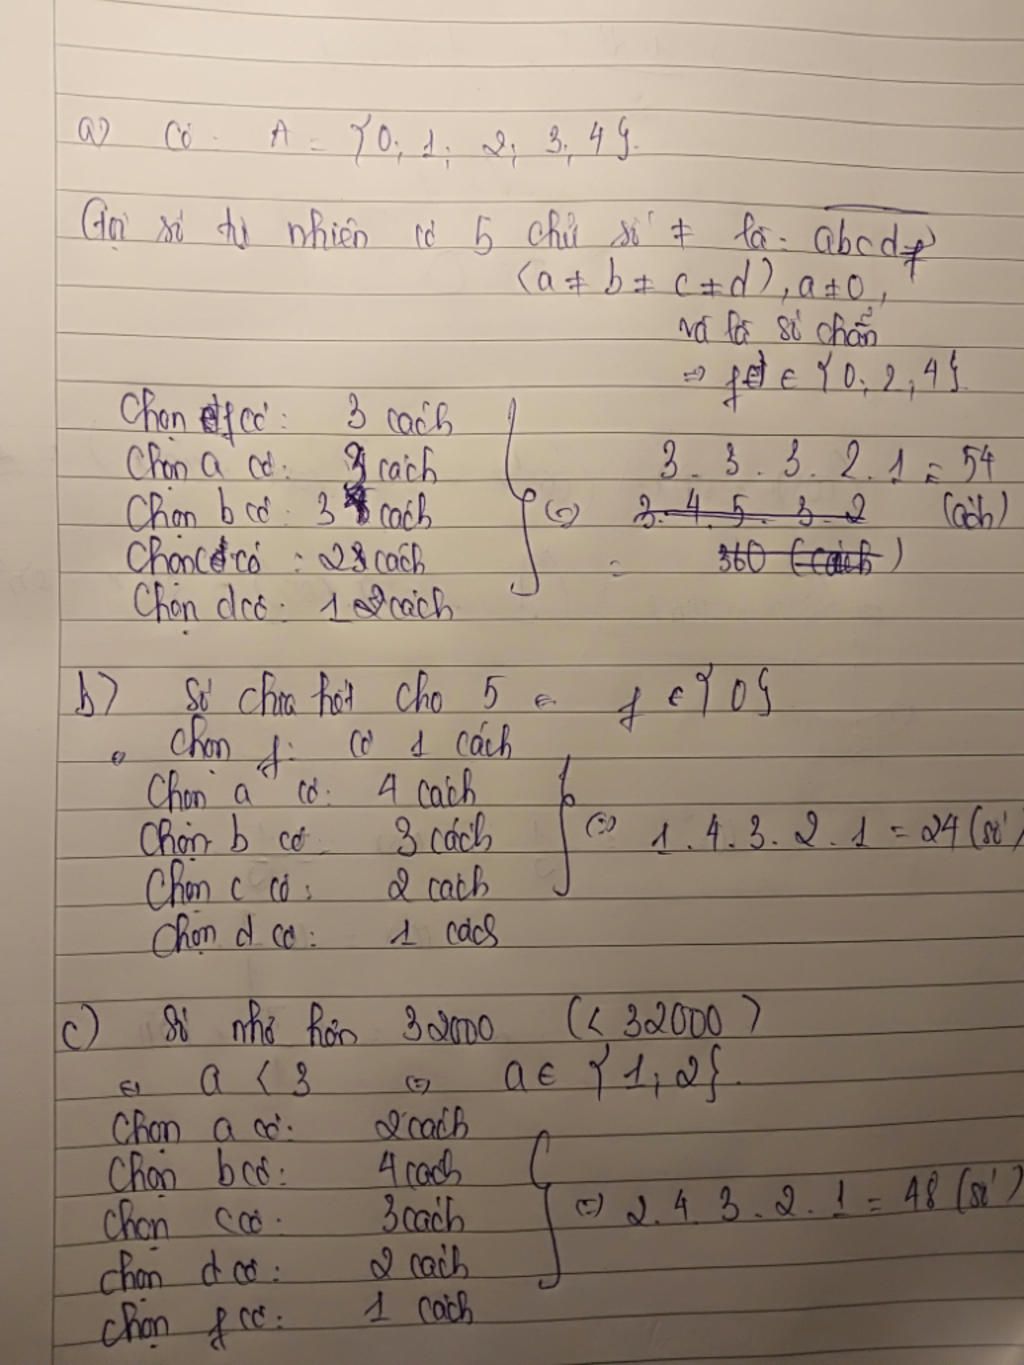 a) Có : A = {0; 1; 2; 3; 4}.
Gọi số tự nhiên có 5 chữ số ≠ là: abcdf
(a ≠ b ≠ c ≠ d), a ≠ 0,
và là số chẵn
⇒ f ∈ {0; 2; 4}.
Chọn f có: 3 cách
Chọn a có: 3 cách
3 . 3 . 3 . 2 . 1 = 54
Chọn b có: 3 cách
⇔ 3. 4. 5. 3. 2 (cách)
Chọn c có : 2 cách
= 360 (cách)
Chọn d có: 1 cách
b) Số chia hết cho 5 = f ∈ {0}
Chọn f: có 1 cách
Chọn a có: 4 cách
Chọn b có 3 cách
⇔ 1 . 4 . 3 . 2 . 1 = 24 (số)
Chọn c có: 2 cách
Chọn d có: 1 cách
c) Số nhỏ hơn 32000 (< 32000)
⇔ a < 3 ⇔ a ∈ {1; 2}.
Chọn a có: 2 cách
Chọn b có: 4 cách
Chọn c có: 3 cách
⇔ 2 . 4 . 3 . 2 . 1 = 48 (số)
Chọn d có: 2 cách
Chọn f có: 1 cách